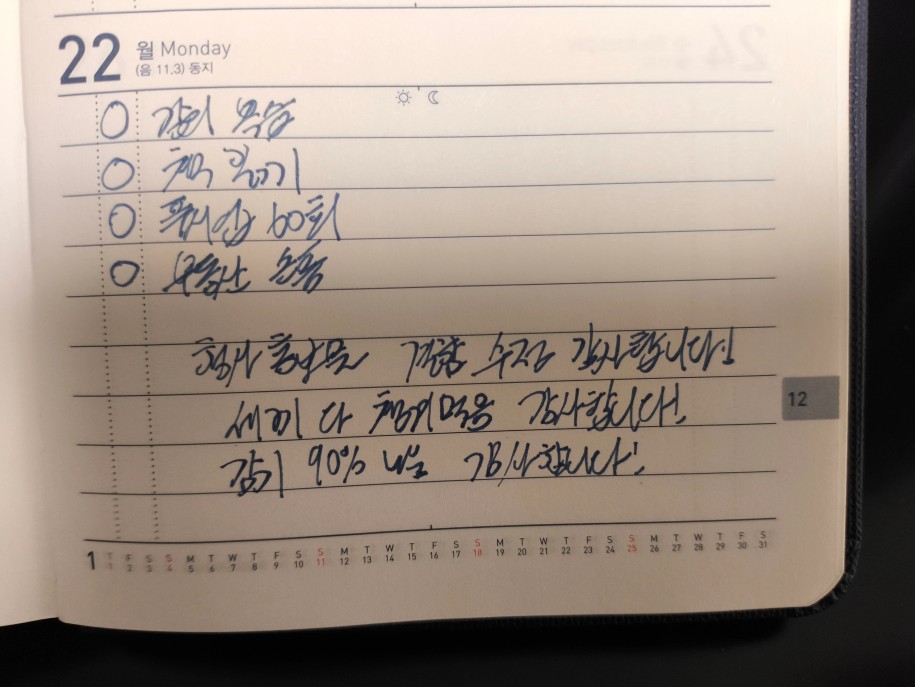 22 월 Monday
(음 11.3) 동지
강의 복습
책 읽기
푸쉬업 60회
부동산 손품
행사 홍보문 수정 감사합니다!
세끼 다 챙겨먹음 감사합니다!
감기 90% 나음 감사합니다!
12
1
T F S S M T W T F S S M T W T F S S M T W T F S S M T W T F S
1 2 3 4 5 6 7 8 9 10 11 12 13 14 15 16 17 18 19 20 21 22 23 24 25 26 27 28 29 30 31